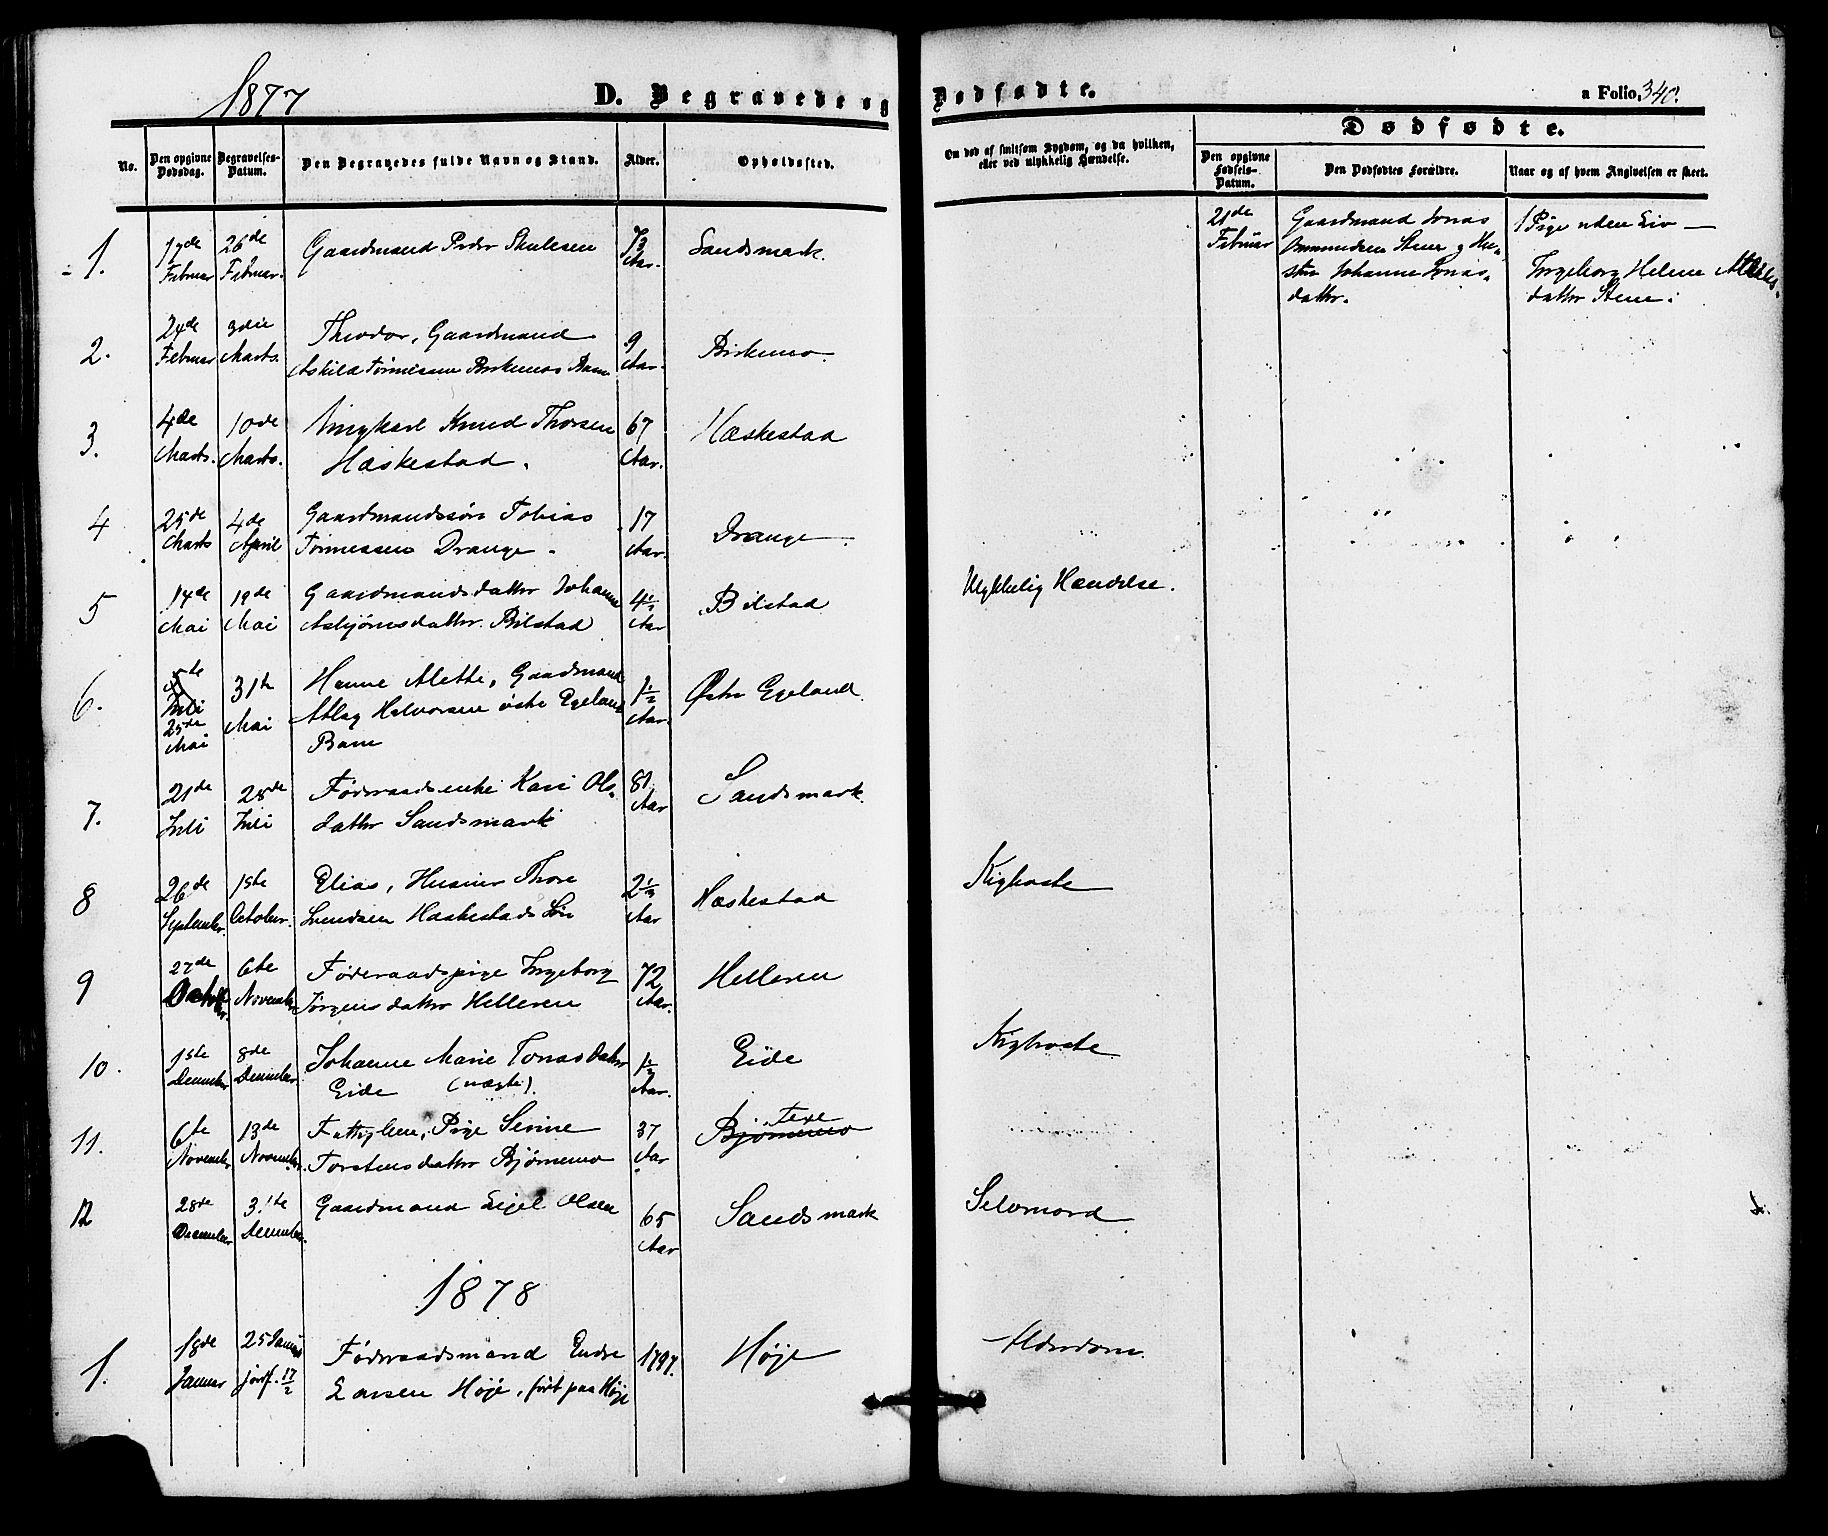 1877
D. Begravede og Dødfødte.
a Folio. 340.
No.
Den opgivne Dødsdag.
Begravelses-Datum.
Den Begravedes fulde Navn og Stand.
Alder.
Opholdssted.
Om død af smitsom Sygdom, og da hvilken, eller ved ulykkelig Hændelse.
Dødfødte.
Den opgivne Fødsels-Datum.
Den Dødfødtes Forældre.
Naar og af hvem Angivelsen er skeet.
1. 17de Februar 26de Februar. Gaardmand Peder Skulesen 73 Aar. Sandsmark.
21de Februar
Gaardmand Jonas
Ommundsen Stene og Hu-
stru Johanne Jonas-
datter.
1 Pige uden Liv —
Ingeborg Helene
datter Stene.
2. 24de Februar 3die Marts. Theodor, Gaardmand
Askild Tønnessen Birkemos Barn 9 Aar. Birkemo.
3. 4de Marts. 10de Marts. Ungkarl Knud Thorsen
Hæskestad. 67 Aar. Hæskestad
4 25de Marts 4de April Gaardmandssøn Tobias
Tønnessen Drange. 17 Aar. Drange.
5 14de Mai 19de Mai Gaardmandsdatter Johanne
Asbjørnsdatter Bilstad 4½ Aar Bilstad
Ulykkelig Hændelse.
6. 5te Juli 25de Mai 31te Mai Hanne Alette, Gaardmand
Atlag Halvorsen østre Egeland
Barn 1½ Aar. Østre Egeland
7. 21de Juli 28de Juli Føderaadsenke Kari Ols-
datter Sandsmark 81 Aar Sandsmark.
8 26de September. 1ste October. Elias, Husmer Thore
Svendsen Hæskestads Søn 2½ Aar Hæskestad
Kighoste
9 27de October. 6te November Føderaadspige Ingeborg
Jørgensdatter Helleren 72 Aar. Helleren
10. 1ste December 8de December. Johanne Marie Jonasdatter
Eide (uægte). 1½ Aar. Eide
Kighoste
11. 6te November 13de November. Fattiglem, Pige Serine
Torstensdatter Bjørnemo 37 Aar. Bjørnemo
12 28de December 31te December. Gaardmand Eigel Olsen 65 Aar Sandsmark
Selvmord.
1878
1. 18de Januar 25 Januar jordf. 17/2 Føderaadsmand Endre
Larsen Høje, født paa Høje 1797. Høje
Alderdom.